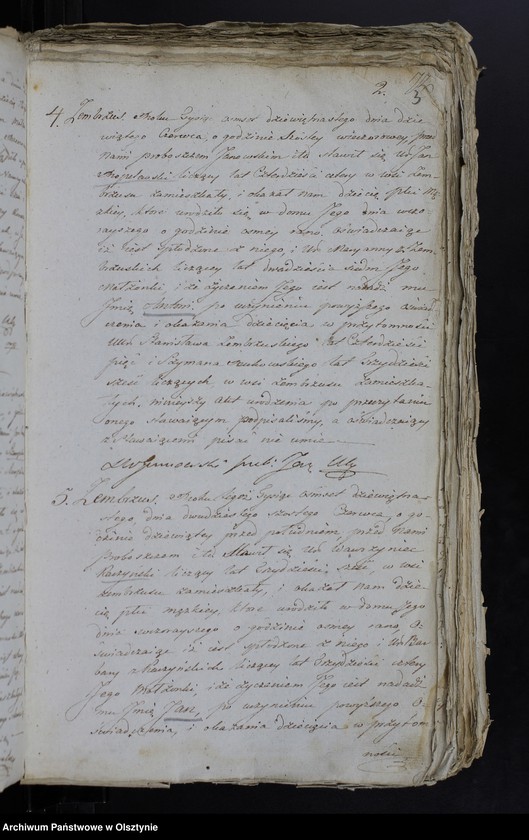 2.
3
4. Zembrzus. Roku Tysiąc osmset dziewiętnastego dnia dzie
wiątego Czerwca, o godzinie szostey wieczorowey, przed
nami proboszczem Janowskim itd. stawił się Ur. Jan
liczący lat Czterdzieści cztery w wsi Zem
brzusu zamieszkały, i okazał nam dziecię płci mę
zkiey, które urodziło się w domu Jego dnia wczo
rayszego o godzinie osmey rano, oświadczaiąc
iż iest spłodzone z niego, i Ur. Maryanny z Zem
brzuskich liczący lat dwadzieścia siedm Jego
Małżonki, i że życzeniem Jego iest nadać mu
Imię Antoni, po uczynieniu powyższego oświad
czenia i okazania dziecięcia w przytomności
Ur. Stanisława Zembrzuskiego lat Czterdzieści
pięć i Szymana lat Trzydzieści
sześć liczących, w wsi Zembrzusu zamieszka
łych, ninieyszy Akt urodzenia, po przeczytaniu
onego stawaiącym podpisaliśmy, a oświadczaiący
z pisać nie umie
5. Zembrzus. Roku Tysiąc osmset dziewiętna
stego, dnia dwudziestego szostego Czerwca, o go
dzinie dziewiątey przed południem, przed nami
Proboszczem itd. stawił się Ur. Wawrzyniec
liczący lat Trzydzieści sześć w wsi
Zembrzusu zamieszkały, i okazał nam dzie
cię płci męzkiey, które urodziło w domu Jego
dnia wczorayszego o godzinie osmey rano, o
świadczaiąc iż iest spłodzone z niego i Ur. Bar
bary z liczący lat Trzydzieści cztery
Jego Małżonki, i że życzeniem Jego iest nadać
mu Imię Jan, po uczynieniu powyższego o
świadczenia, i okazania dziecięcia w przytom
ności
Archiwum Państwowe w Olsztynie